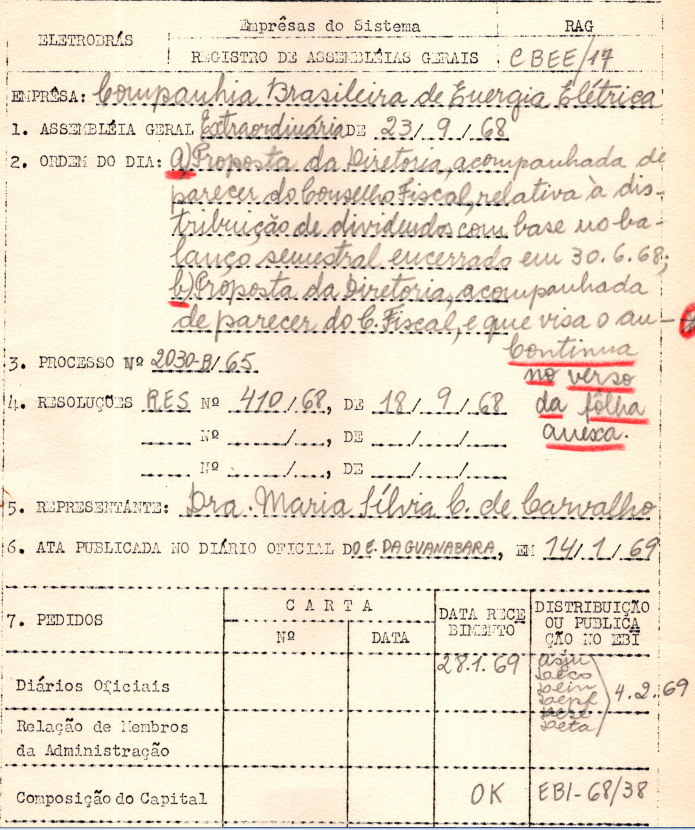 ELETROBRÁS
Emprêsas do Sistema
RAG
REGISTRO DE ASSEMBLÉIAS GERAIS
CBEE/17
EMPRÊSA: Companhia Brasileira de Energia Elétrica
1. ASSEMBLÉIA GERAL Extraordinária DE 23/9/68
2. ORDEM DO DIA: a) Proposta da Diretoria, acompanhada de
parecer do Conselho Fiscal, relativa à dis-
tribuição de dividendos com base no ba-
lanço semestral encerrado em 30.6.68;
b) Proposta da Diretoria, acompanhada
de parecer do C. Fiscal, e que visa o au-
Continua
no verso
da fôlha
anexa.
3. PROCESSO Nº 2030-B/65
4. RESOLUÇÕES RES Nº 410/68, DE 18/9/68
Nº / , DE / /
Nº / , DE / /
5. REPRESENTANTE: Dra. Maria Sílvia C. de Carvalho
6. ATA PUBLICADA NO DIÁRIO OFICIAL DO E. DA GUANABARA, EM 14/1/69
7. PEDIDOS
C A R T A
Nº
DATA
DATA RECE
BIMENTO
DISTRIBUIÇÃO
OU PUBLICA
ÇÃO NO EBI
Diários Oficiais
28.1.69
4.2.69
Relação de Membros
da Administração
Composição do Capital
OK
EBI-68/38